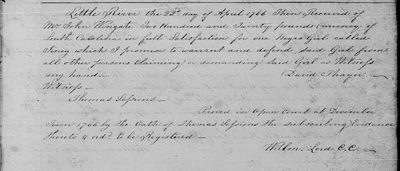 Little River the 23d day of April 1766 Then Received of
Mr John Wingate Two Hundred and Twenty pounds Currency of
South Carolina in full Satisfaction for one Negro Girl called
which I promise to warrant and defend Said Girl from
all other persons Claiming or demanding Said Girl as Witness
my hand — David Thayer
Witness —
Thomas Sessions —
Proved in Open Court at December
Term 1766 by the Oath of Thomas Sessions the Subscribing Evidence
thereto & ordd to be Registered —
Willm. Lord C.C. —